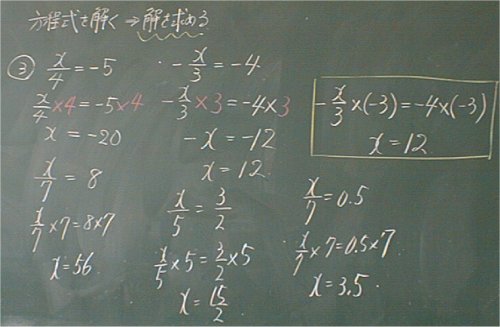 方程式を解く → 解を求める
③ x/4 = -5
x/4 × 4 = -5 × 4
x = -20
x/7 = 8
x/7 × 7 = 8 × 7
x = 56
-x/3 = -4
-x/3 × 3 = -4 × 3
-x = -12
x = 12
x/5 = 3/2
x/5 × 5 = 3/2 × 5
x = 15/2
-x/3 × (-3) = -4 × (-3)
x = 12
x/7 = 0.5
x/7 × 7 = 0.5 × 7
x = 3.5